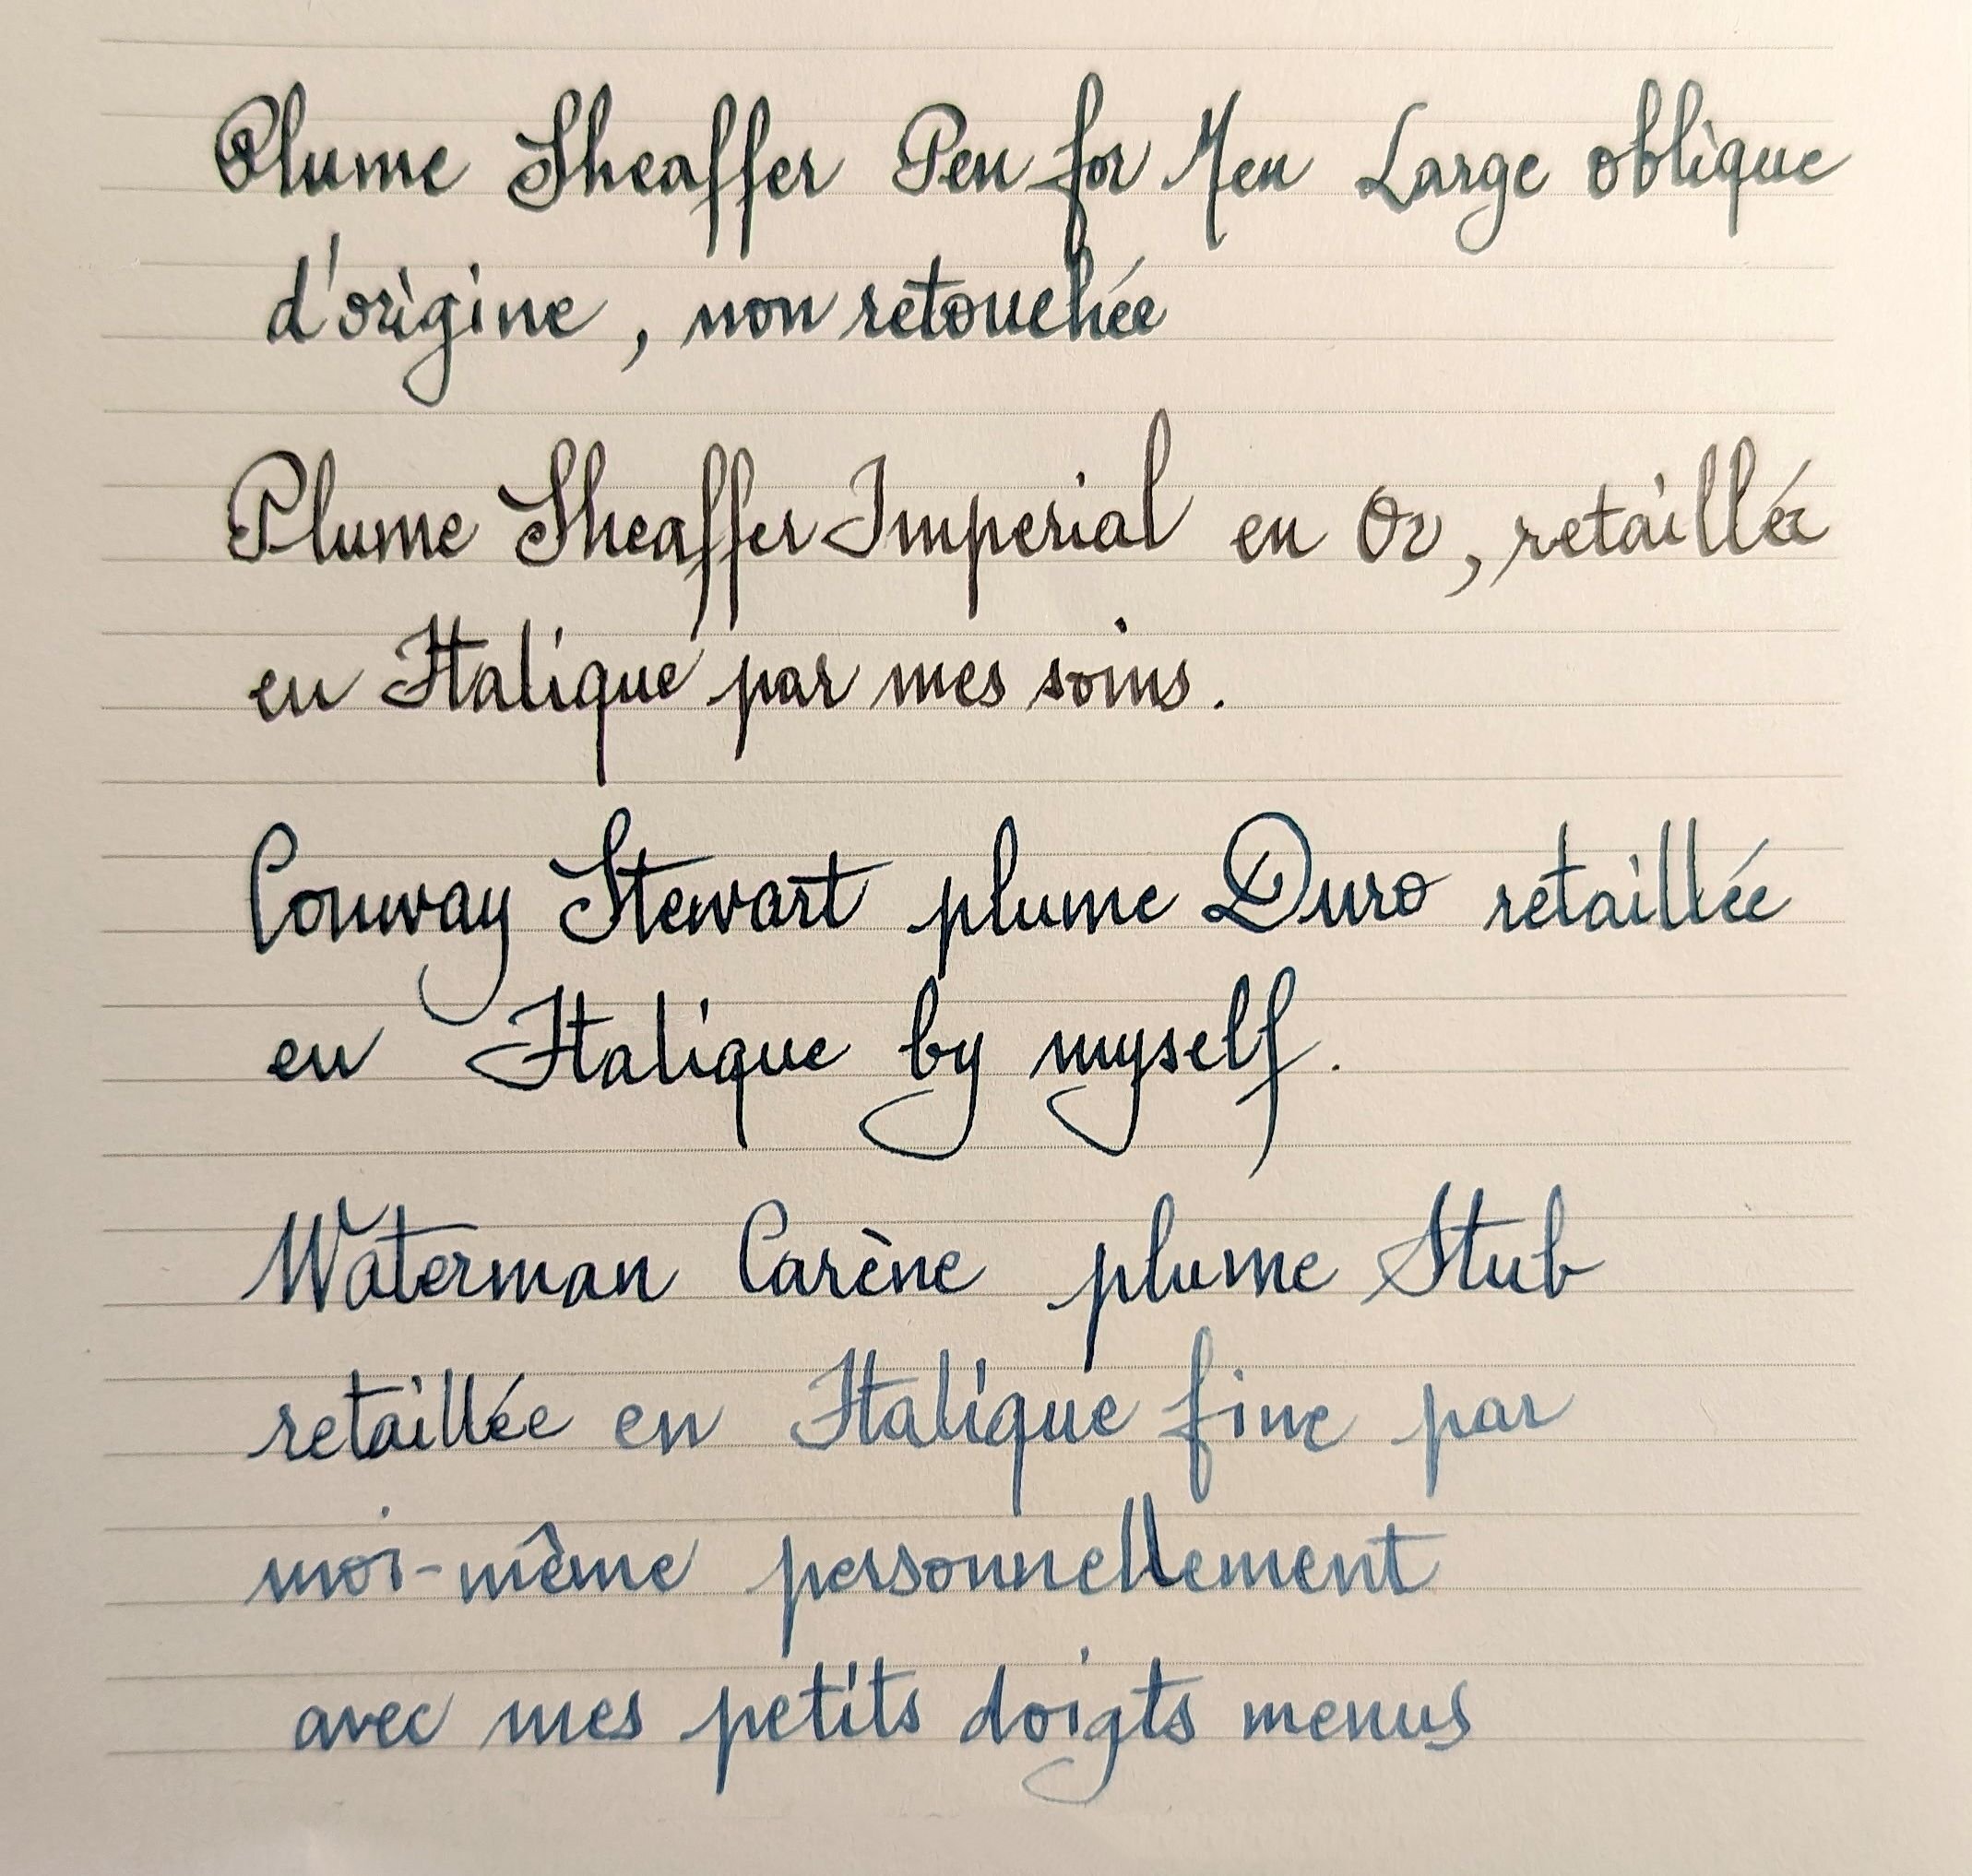 Plume Sheaffer Pen for Men Large oblique
d'origine, non retouchée
Plume Sheaffer Imperial en Or, retaillée
en Italique par mes soins.
Conway Stewart plume Duro retaillée
en Italique by myself.
Waterman Carène plume Stub
retaillée en Italique fine par
moi-même personnellement
avec mes petits doigts menus